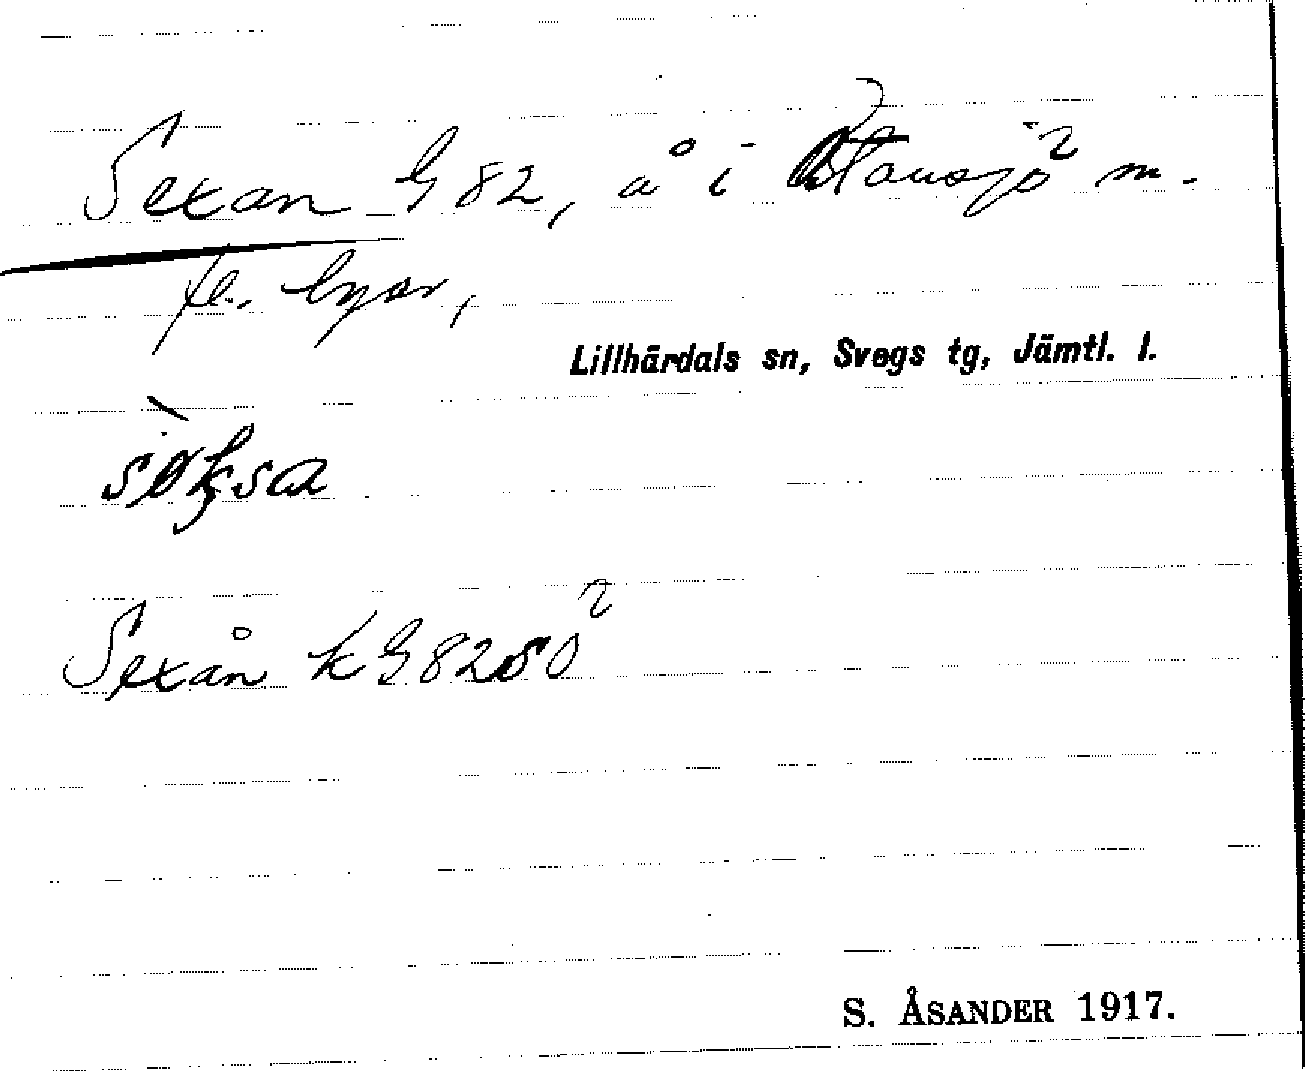 Sexan G 82, å i Olansjö m.
fl. byar,
Lillhärdals sn, Svegs tg, Jämtl. l.
sø̀ksa
Sexån k G 82 SO
S. ÅSANDER 1917.